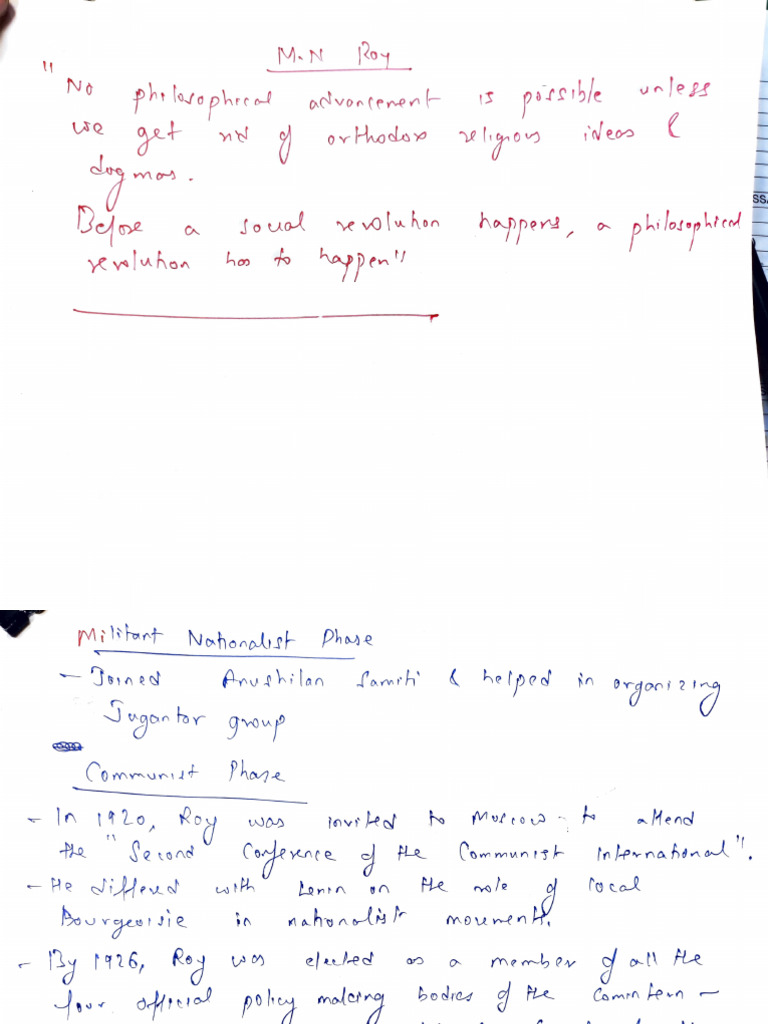 M.N Roy
"No philosophical advancement is possible unless
we get rid of orthodox religious ideas &
dogmas.
Before a social revolution happens, a philosophical
revolution has to happen"
Militant Nationalist Phase
- Joined Anushilan Samiti & helped in organizing
Jugantar group
Communist Phase
- In 1920, Roy was invited to Moscow to attend
the "Second Conference of the Communist International".
- He differed with Lenin on the role of local
Bourgeoisie in nationalist movement.
- By 1926, Roy was elected as a member of all the
four official policy making bodies of the Comintern -